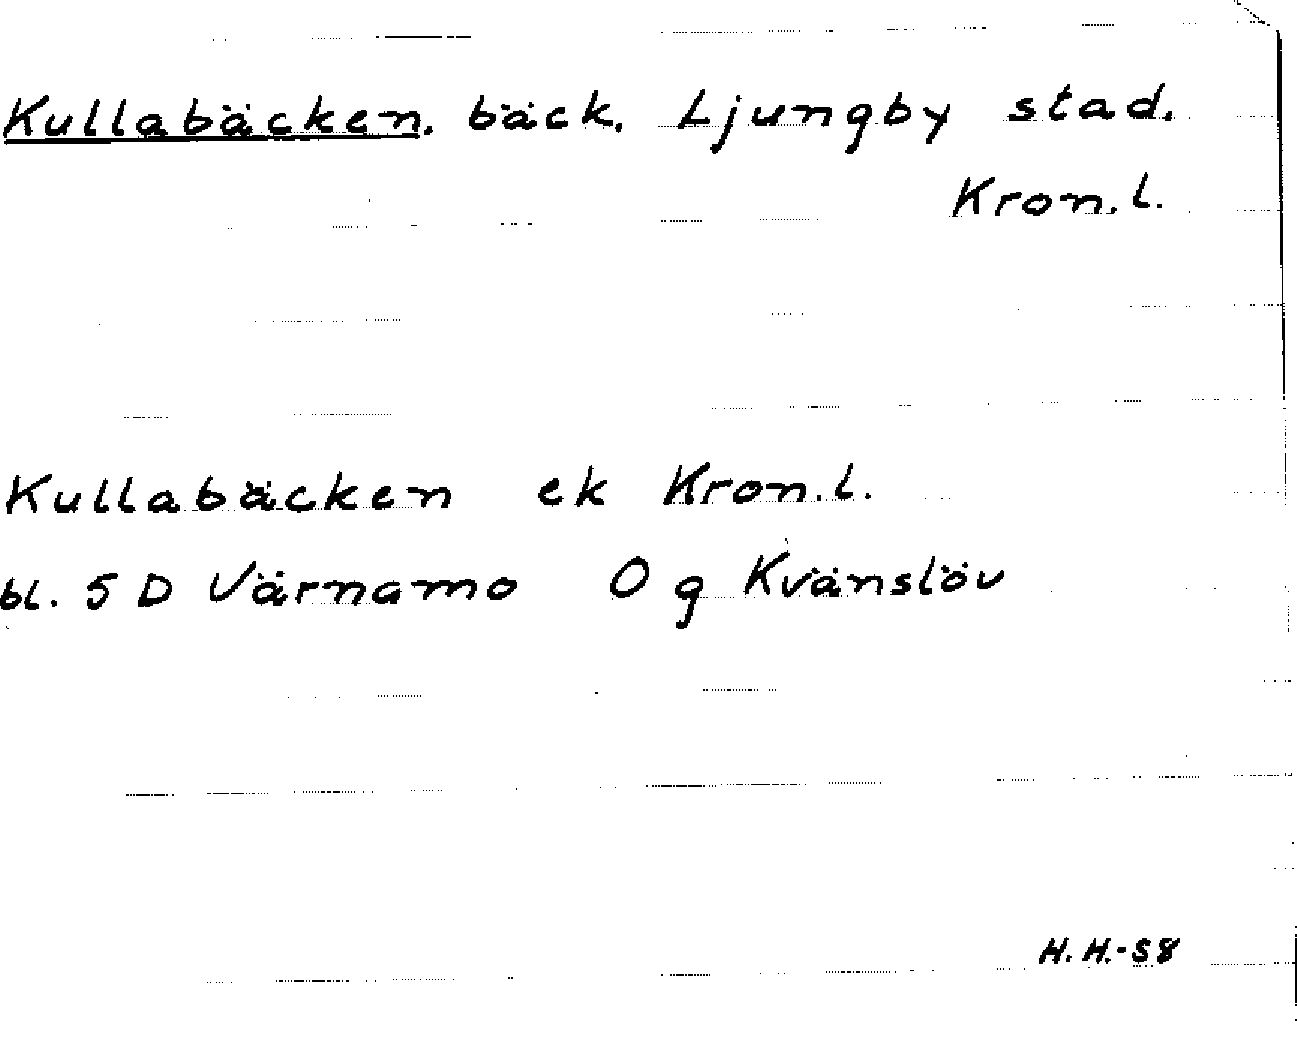 Kullabäcken. bäck. Ljungby stad.
Kron.l.
Kullabäcken ek Kron.l.
bl. 5 D Värnamo O g Kvänslöv
H.H.-58